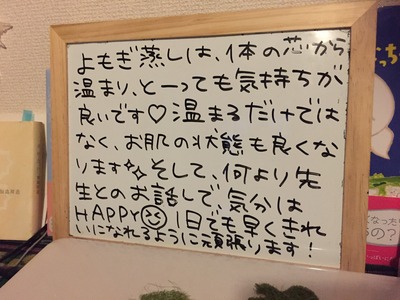 よもぎ蒸しは、1本の芯から
温まり、と一っても気持ちが
良いです♡温まるだけでは
なく、お肌の状態も良くな
ります✨そして、何より先
生とのお話しで、気分は
HAPPY😆1日でも早くきれ
いになれるように頑張ります!